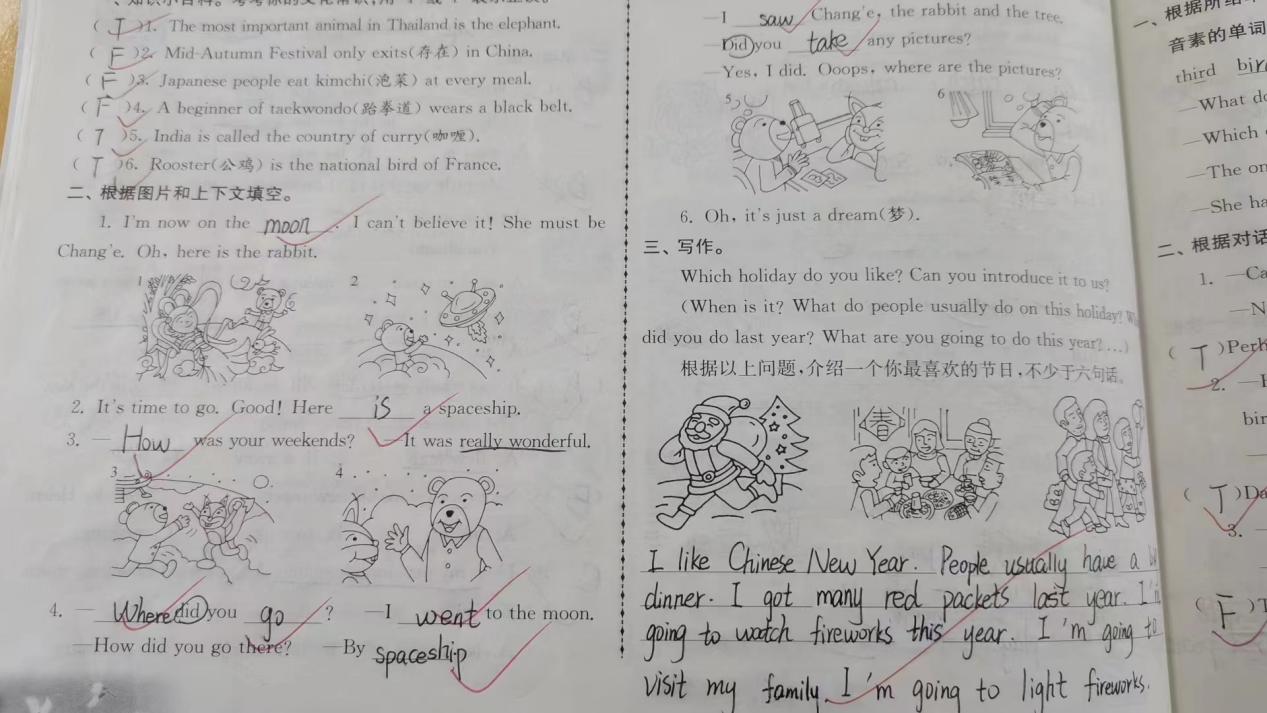 ( T )1. The most important animal in Thailand is the elephant.
( F )2. Mid-Autumn Festival only exits(存在) in China.
( F )3. Japanese people eat kimchi(泡菜) at every meal.
( F )4. A beginner of taekwondo(跆拳道) wears a black belt.
( T )5. India is called the country of curry(咖喱).
( T )6. Rooster(公鸡) is the national bird of France.
二、根据图片和上下文填空。
1. I'm now on the moon. I can't believe it! She must be
Chang'e. Oh, here is the rabbit.
1 2
2. It's time to go. Good! Here is a spaceship.
3. —How was your weekends? —It was really wonderful.
3 4
4. —Where did you go? —I went to the moon.
—How did you go there? —By spaceship
—I saw Chang'e, the rabbit and the tree.
—Did you take any pictures?
—Yes, I did. Ooops, where are the pictures?
5 6
6. Oh, it's just a dream(梦).
三、写作。
Which holiday do you like? Can you introduce it to us?
(When is it? What do people usually do on this holiday?
did you do last year? What are you going to do this year?...)
根据以上问题,介绍一个你最喜欢的节日,不少于六句话。
春
I like Chinese New Year. People usually have a
dinner. I got many red packets last year. I'm
going to watch fireworks this year. I'm going to
visit my family. I'm going to light fireworks.
一、根据所
音素的单词
third
—What do
—Which
—The on
—She ha
二、根据对话
1. —Ca
—N
( T )Perh
2.
bir
( T )Da
3.
( F )T